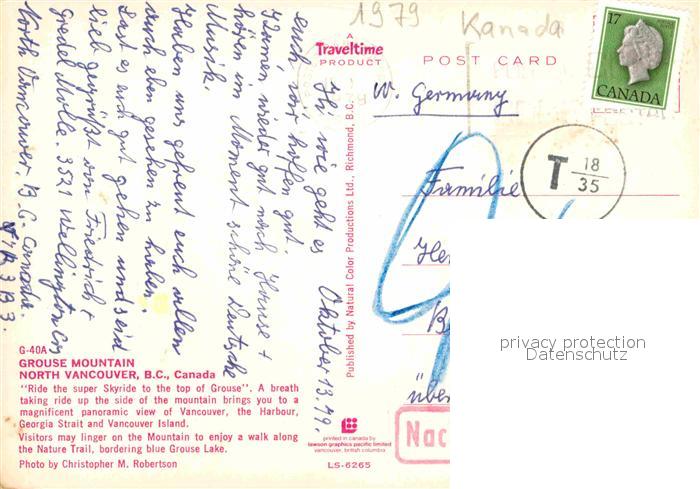 1979 Kanada
A
Traveltime
PRODUCT
POST CARD
17
CANADA
W. Germany
T 18/35
Familie
Her
B
über
Nac
privacy protection
Datenschutz
Oktober 13. 79.
Hi wie geht es
euch wir hoffen gut.
Kamen wieder gut nach Hause +
hören im Moment schöne Deutsche
Musik.
Haben uns gefreut euch allen
auch eben gesehen zu haben.
Last es euch gut gehen und seid
lieb gegrüßt von Friedrich +
Gredel Molla. 3521 Wellington Cres
North Vancouver, B.C. Canada.
3B3.
Published by Natural Color Productions Ltd., Richmond, B.C.
G-40A
GROUSE MOUNTAIN
NORTH VANCOUVER, B.C., Canada
"Ride the super Skyride to the top of Grouse". A breath
taking ride up the side of the mountain brings you to a
magnificent panoramic view of Vancouver, the Harbour,
Georgia Strait and Vancouver Island.
Visitors may linger on the Mountain to enjoy a walk along
the Nature Trail, bordering blue Grouse Lake.
Photo by Christopher M. Robertson
printed in canada by
lawson graphics pacific limited
vancouver, british columbia
LS-6265